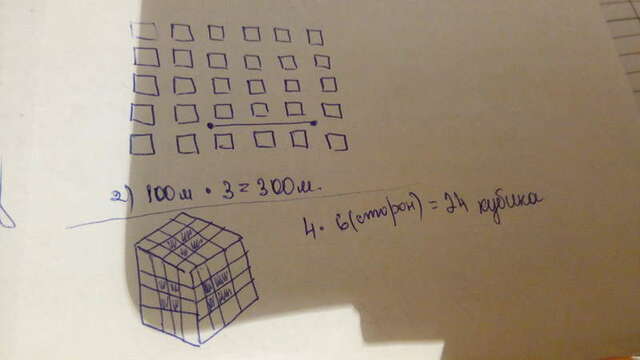 2) 100м · 3 = 300м.
4 · 6(сторон) = 24 кубика